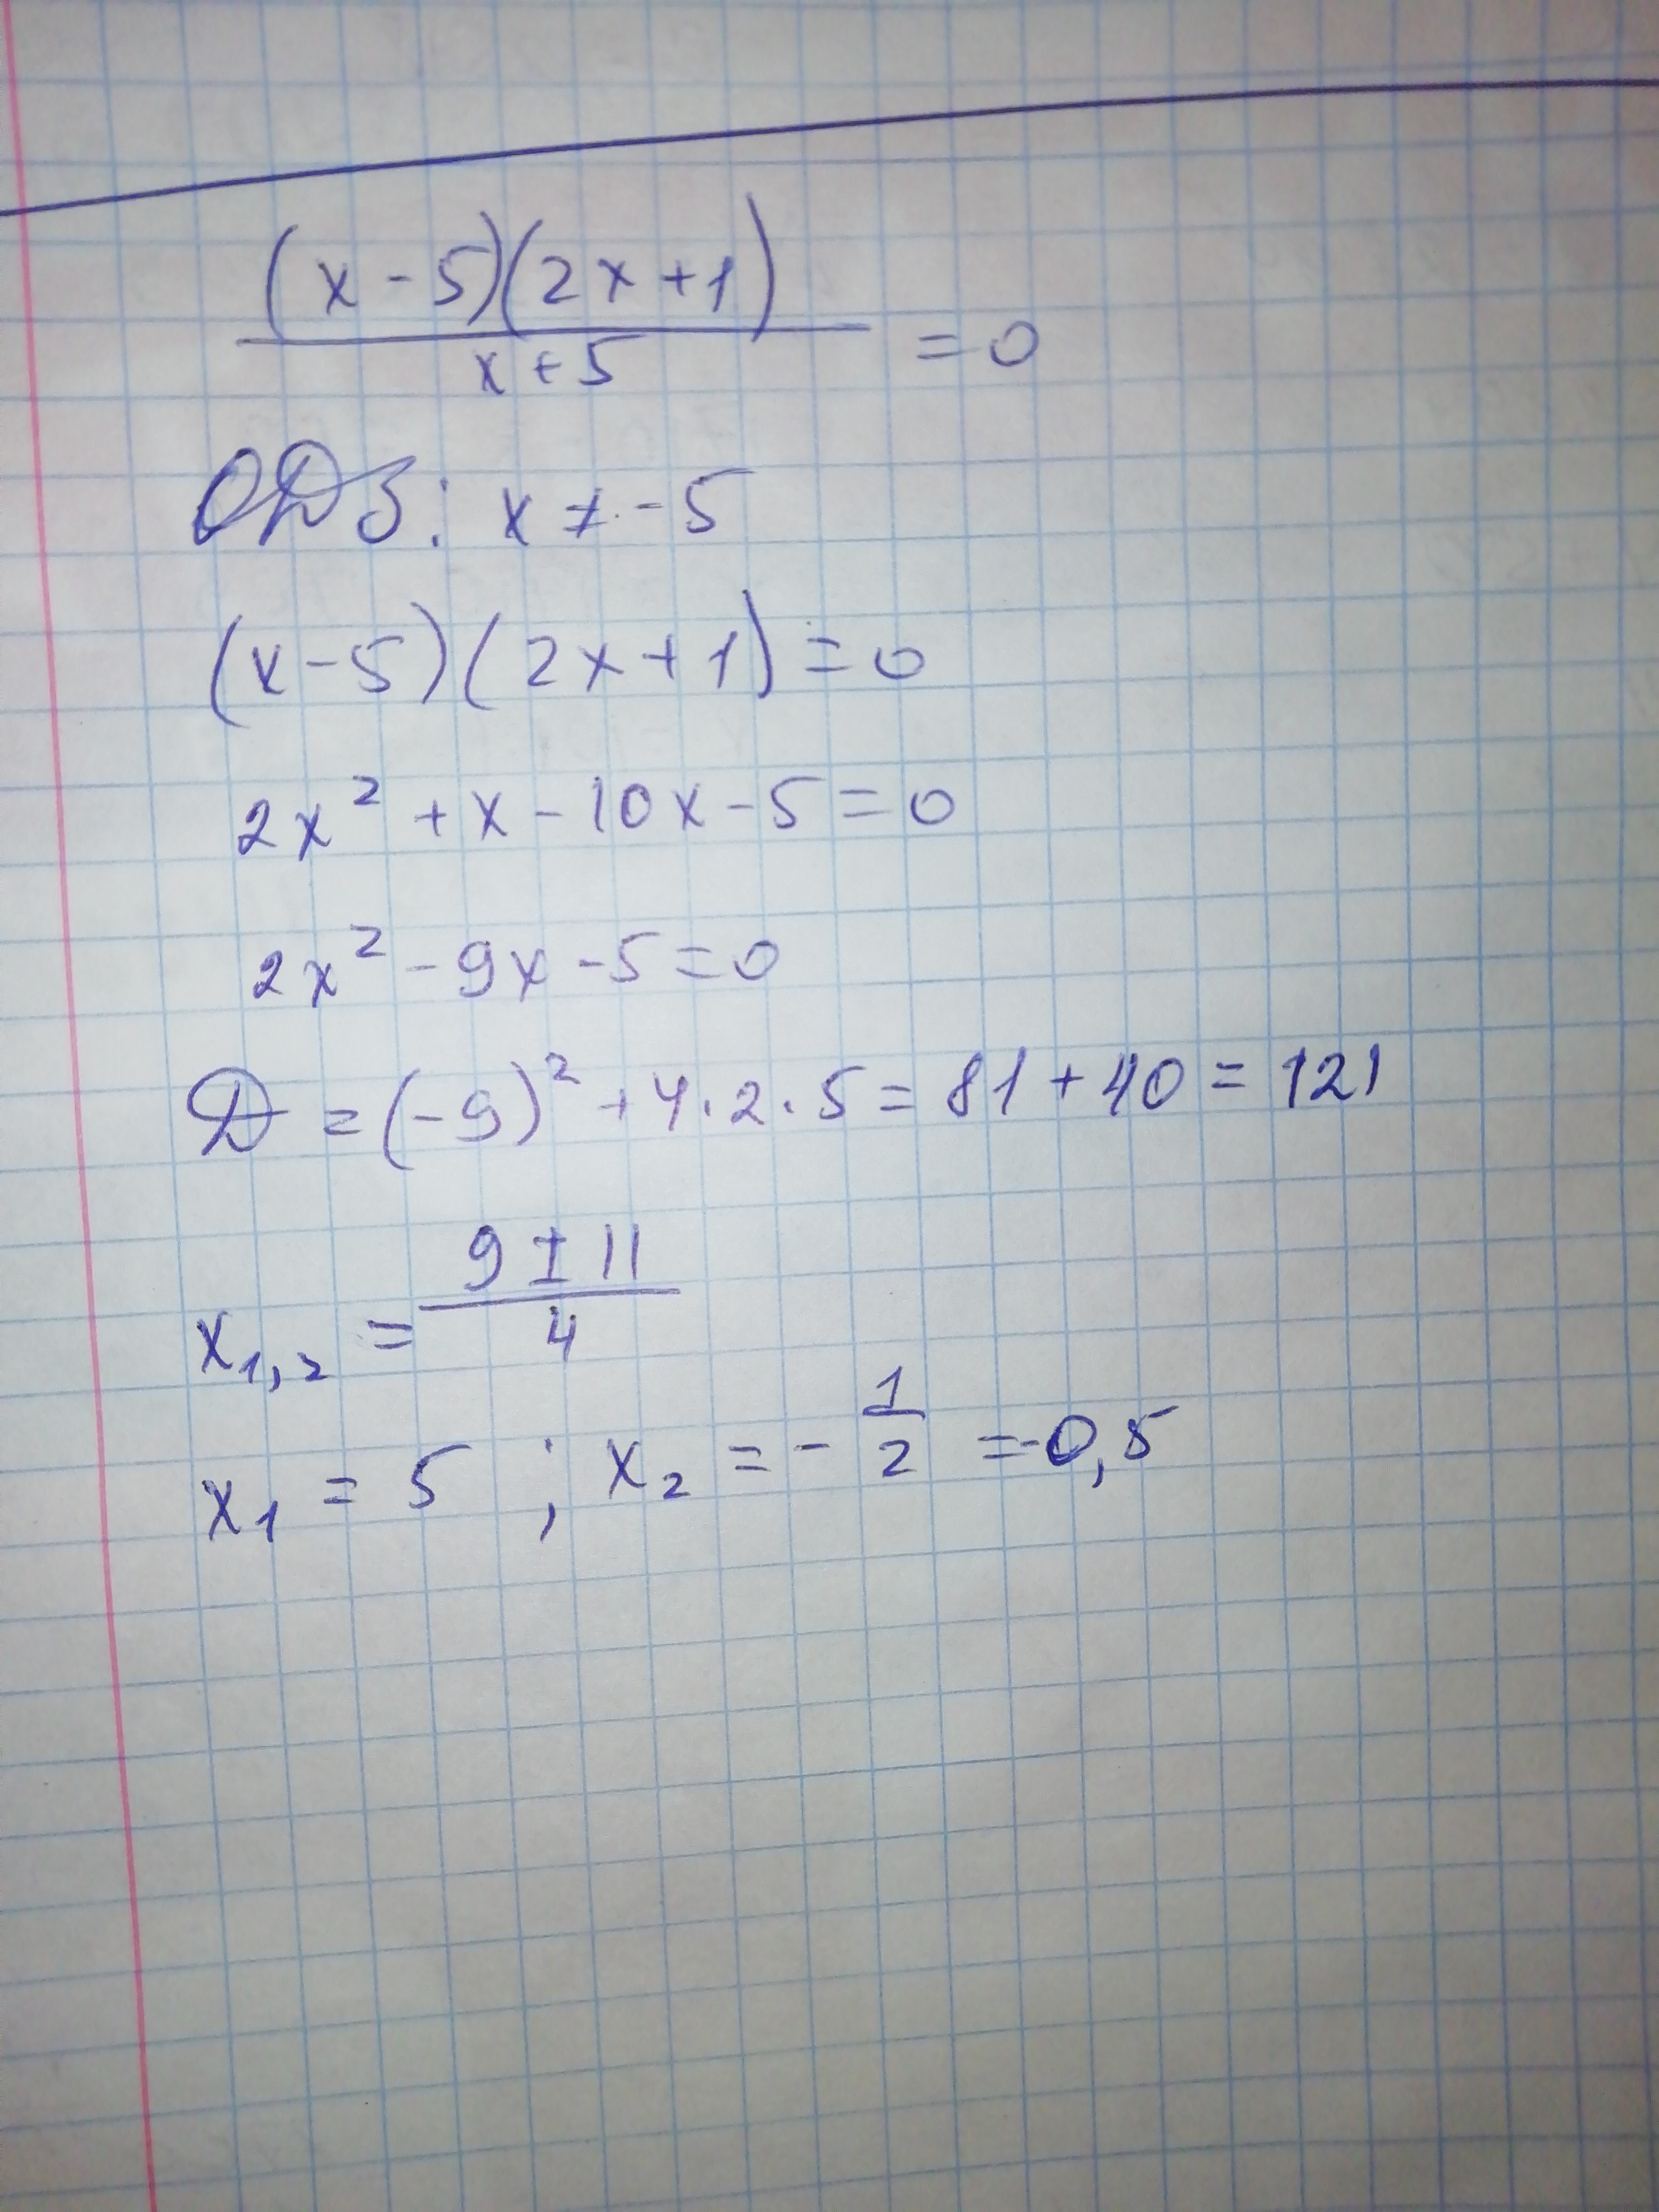 (x-5)(2x+1)/x+5 =0
ОДЗ: x≠-5
(x-5)(2x+1)=0
2x²+x-10x-5=0
2x²-9x-5=0
D=(-9)²+4·2·5=81+40=121
x₁,₂=9±11/4
x₁=5; x₂=-1/2=-0,5